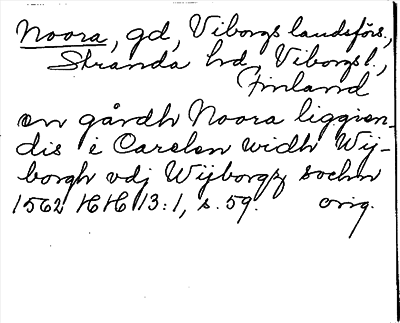 Noora, gd, Viborgs landsförs.,
Stranda hd, Viborgs l.,
Finland
en gårdh Noora liggien-
dis i Carelen widh Wij-
borgh vdj Wijborgz sochn
1562 HH 13:1, s. 59. orig.